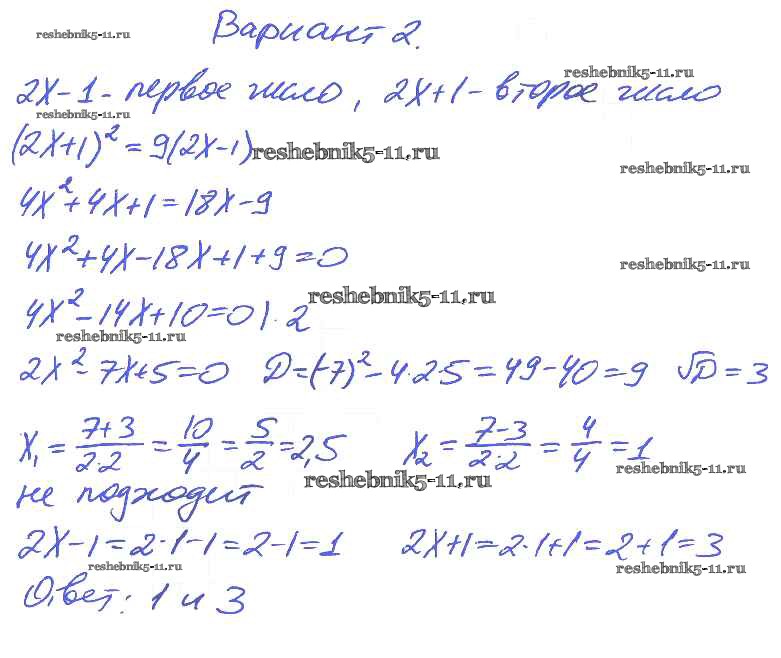 Вариант 2.
resheb​nik5-11.ru
resheb​nik5-11.ru
2x-1 - первое число, 2x+1 - второе число
reshebnik5-11.ru
(2x+1)² = 9(2x-1)
reshebnik5-11.ru
reshebnik5-11.ru
4x²+4x+1=18x-9
4x²+4x-18x+1+9=0
reshebnik5-11.ru
reshebnik5-11.ru
4x²-14x+10=0 |·2
reshebnik5-11.ru
2x²-7x+5=0 D=(-7)²-4·2·5=49-40=9 √D=3
x₁=7+3/2·2=10/4=5/2=2,5 x₂=7-3/2·2=4/4=1
reshebnik5-11.ru
reshebnik5-11.ru
не подходит
2x-1=2·1-1=2-1=1 2x+1=2·1+1=2+1=3
reshebnik5-11.ru
reshebnik5-11.ru
Ответ: 1 и 3